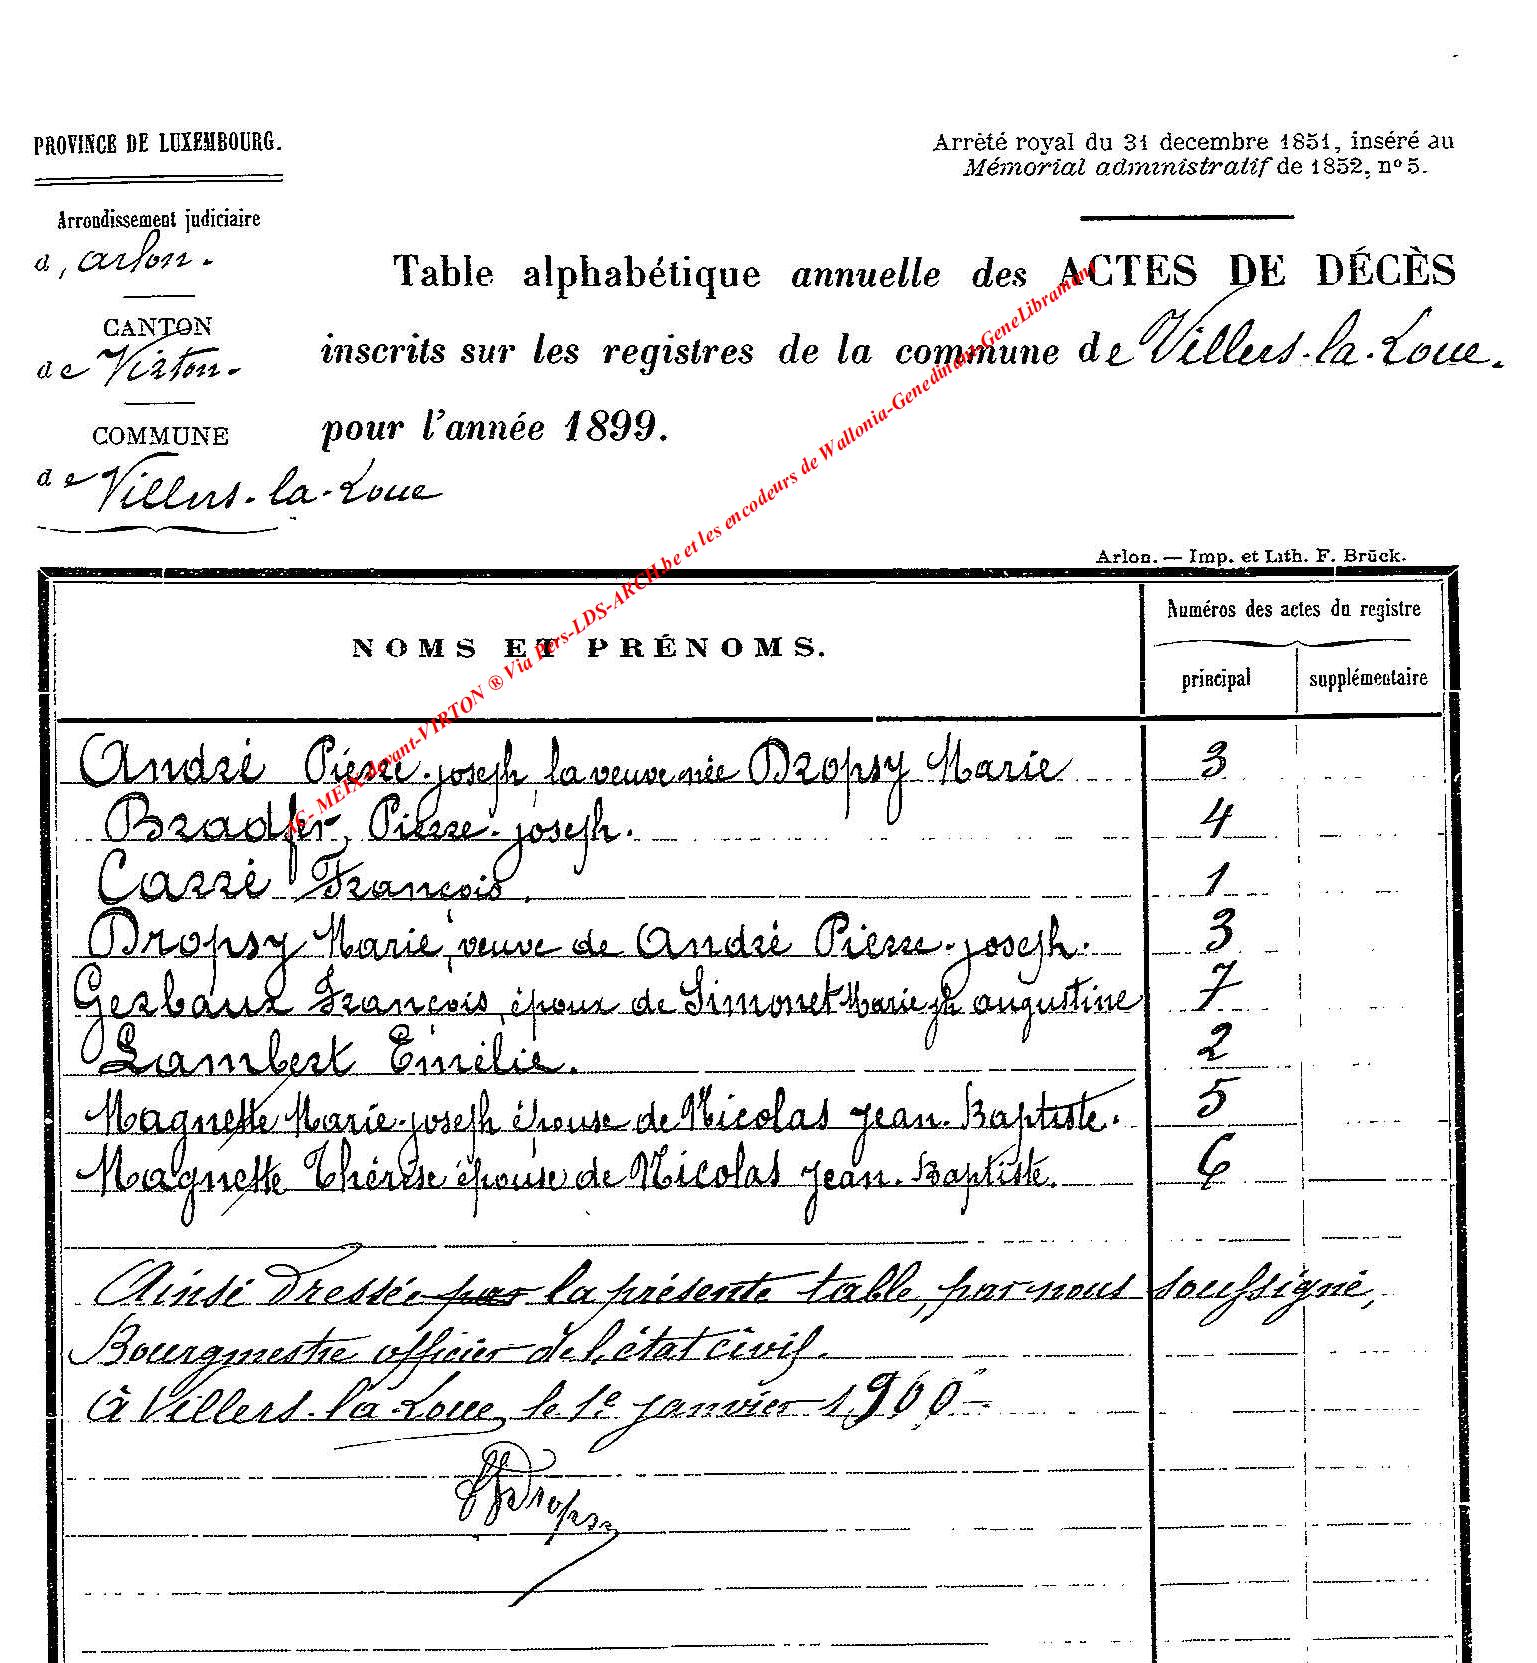 PROVINCE DE LUXEMBOURG.
Arrêté royal du 31 decembre 1851, inséré au
Mémorial administratif de 1852, nº 5.
Arrondissement judiciaire
d, arlon.
CANTON
de Virton.
COMMUNE
de Villers-la-Loue
Table alphabétique annuelle des ACTES DE DÉCÈS
inscrits sur les registres de la commune de Villers-la-Loue.
pour l'année 1899.
MEIX-devant-VIRTON ® Via Pers-LDS-ARCH.be et les encodeurs de Wallonia-Genedinant-GeneLibramont
Arlon. — Imp. et Lith. F. Brück.
NOMS ET PRÉNOMS.
Numéros des actes du registre
principal supplémentaire
André Pierre-joseph, la veuve née Dropsy Marie 3
Bradfer, Pierre-joseph. 4
Carré François. 1
Dropsy Marie, veuve de André Pierre-joseph. 3
Gerbaux François, époux de Simonet Marie jh augustine 7
Lambert Emélie. 2
Magnette Marie-joseph épouse de Nicolas jean-Baptiste. 5
Magnette Thérèse épouse de Nicolas jean-Baptiste. 6
Ainsi dressée par la présente table, par nous soussigné,
Bourgmestre officier de l'état civil.
à Villers-la-Loue, le 1e janvier 1900
Dropsy